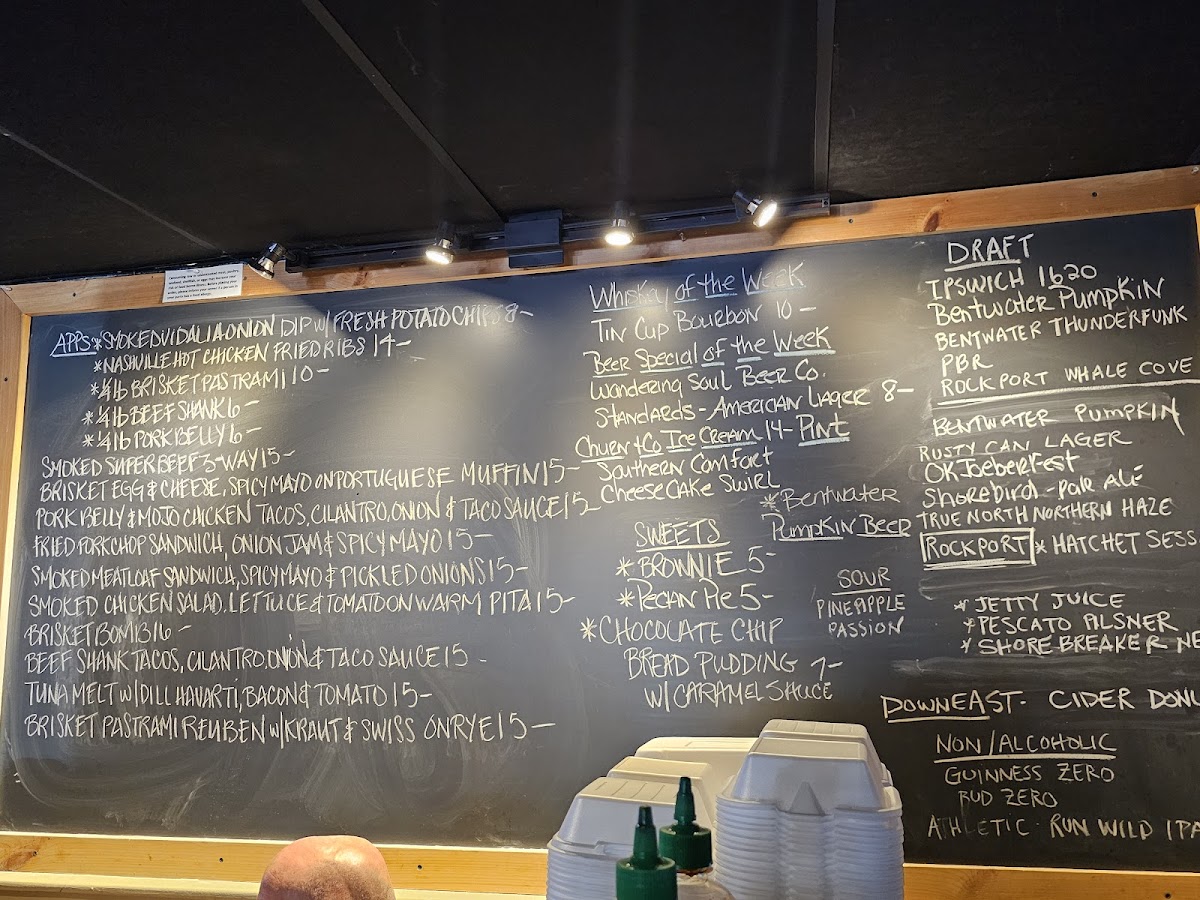 APPS * SMOKED VIDALIA ONION DIP W/ FRESH POTATO CHIPS 8-
* NASHVILLE HOT CHICKEN FRIED RIBS 14-
* 1/4 lb BRISKET PASTRAMI 10-
* 1/4 lb BEEF SHANK 6-
* 1/4 lb PORK BELLY 6-
SMOKED SUPER BEEF 3-WAY 15-
BRISKET EGG & CHEESE, SPICY MAYO ON PORTUGUESE MUFFIN 15-
PORK BELLY & MOJO CHICKEN TACOS, CILANTRO, ONION & TACO SAUCE 15-
FRIED PORKCHOP SANDWICH, ONION JAM & SPICY MAYO 15-
SMOKED MEATLOAF SANDWICH, SPICY MAYO & PICKLED ONIONS 15-
SMOKED CHICKEN SALAD, LETTUCE & TOMATO ON WARM PITA 15-
BRISKET BOMB 16-
BEEF SHANK TACOS, CILANTRO, ONION & TACO SAUCE 15-
TUNA MELT W/ DILL HAVARTI, BACON & TOMATO 15-
BRISKET PASTRAMI REUBEN W/ KRAUT & SWISS ON RYE 15-
Whiskey of the Week
TIN CUP BOURBON 10-
Beer Special of the Week
Wandering Soul BEER CO.
STANDARDS - AMERICAN LAGER 8-
Churn + Co Ice Cream 14- Pint
Southern Comfort
CheeseCake Swirl
* Bentwater
Pumpkin Beer
SWEETS
* BROWNIE 5-
* PECAN PIE 5-
* CHOCOLATE CHIP
BREAD PUDDING 7-
W/ CARAMEL SAUCE
SOUR
PINEAPPLE
PASSION
DRAFT
IPSWICH 1620
Bentwater Pumpkin
BENTWATER THUNDERFUNK
PBR
ROCKPORT WHALE COVE
BENTWATER PUMPKIN
RUSTY CAN LAGER
OKToeberFest
Shorebird - Pale Ale
TRUE NORTH NORTHERN HAZE
ROCKPORT * HATCHET SESS
* JETTY JUICE
* PESCATO PILSNER
* SHORE BREAKER NE
DOWNEAST - CIDER DON
NON/ALCOHOLIC
GUINNESS ZERO
BUD ZERO
ATHLETIC - RUN WILD IPA